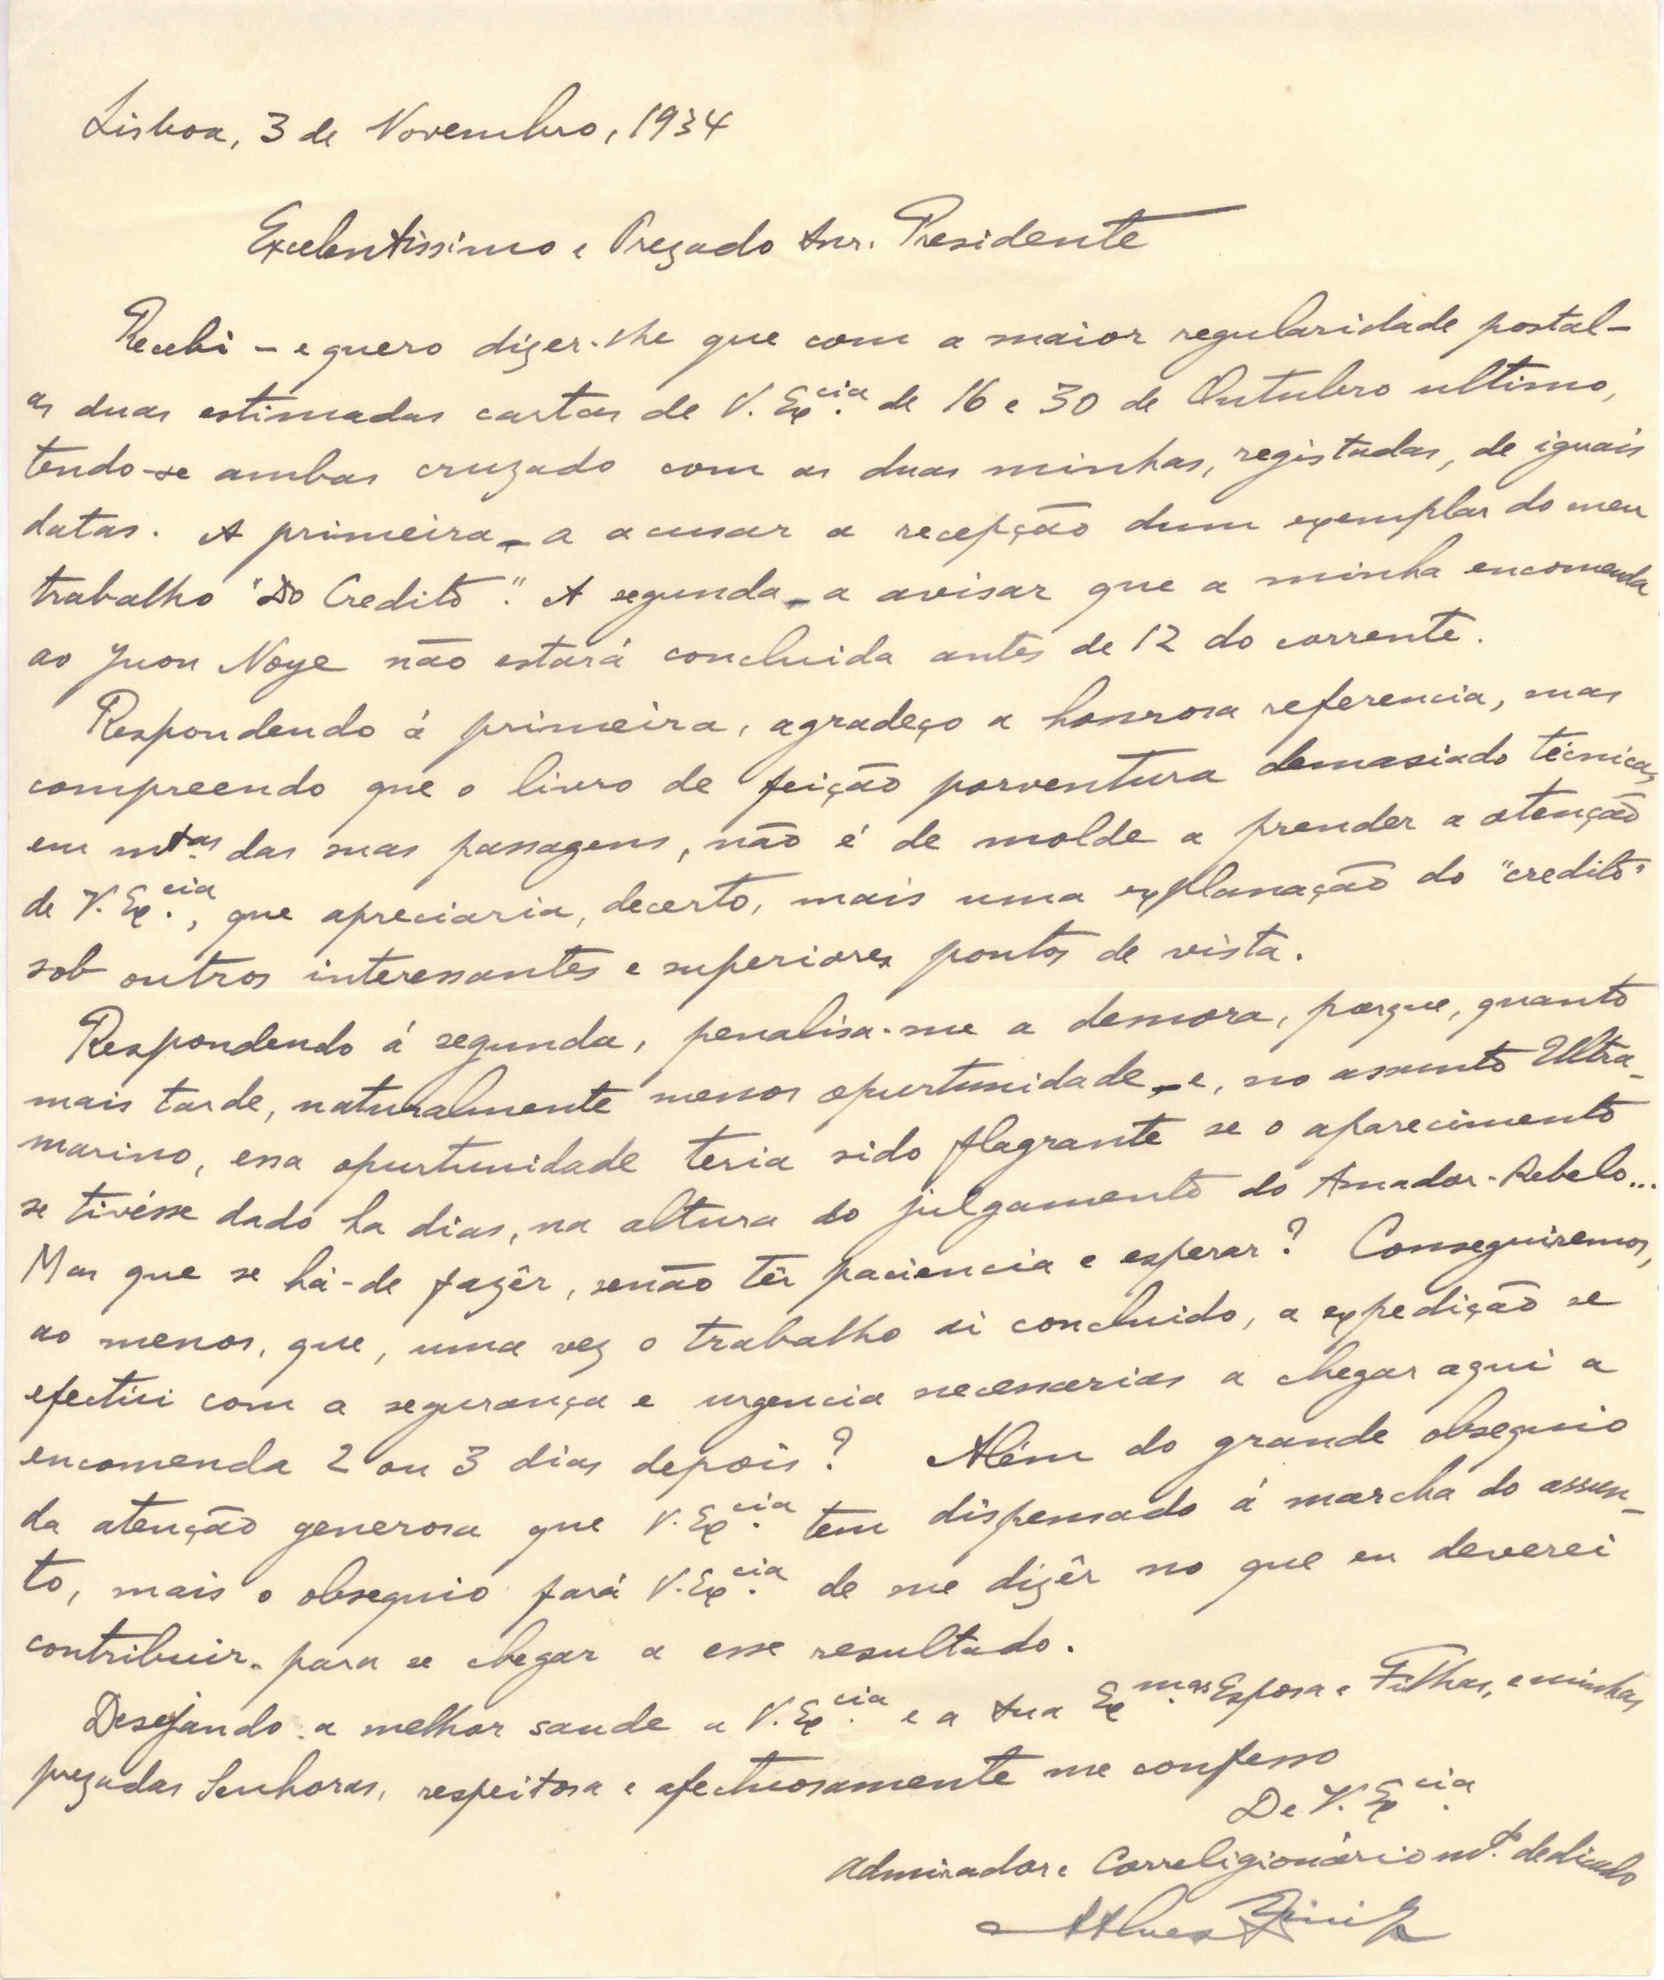 Lisboa, 3 de Novembro, 1934
Excelentissimo e Prezado Snr. Presidente
Recebi – e quero dizer-lhe que com a maior regularidade postal –
as duas estimadas cartas de V. Ex.cia de 16 e 30 de Outubro ultimo,
tendo-se ambas cruzado com as duas minhas, registadas, de iguais
datas. A primeira – a acusar a recepção dum exemplar do meu
trabalho "Do Credito". A segunda – a avisar que a minha encomenda
ao Yvon Noye não estará concluida antes de 12 do corrente.
Respondendo á primeira, agradeço a honrosa referencia, mas
compreendo que o livro de feição porventura demasiado técnica,
em mtas. das suas passagens, não é de molde a prender a atenção
de V. Ex.cia, que apreciaria, decerto, mais uma explanação do "credito"
sob outros interessantes e superiores pontos de vista.
Respondendo á segunda, penalisa-me a demora, porque, quanto
mais tarde, naturalmente menos opurtunidade – e, no assunto Ultra-
marino, essa opurtunidade teria sido flagrante se o aparecimento
se tivésse dado ha dias, na altura do julgamento do Amador-Rebelo...
Mas que se há-de fazêr, senão têr paciencia e esperar? Conseguiremos,
ao menos, que, uma vez o trabalho aí concluido, a expedição se
efectúi com a segurança e urgencia necessarias a chegar aqui a
encomenda 2 ou 3 dias depois? Além do grande obsequio
da atenção generosa que V. Ex.cia tem dispensado á marcha do assun-
to, mais o obsequio fará V. Ex.cia de me dizêr no que eu deverei
contribuir para se chegar a esse resultado.
Desejando a melhor saude a V. Ex.cia e a Sua Ex.mas Esposa e Filhas, e minhas
prezadas Senhoras, respeitosa e afectuosamente me confesso
De V. Ex.cia
Admirador e Correligionário mt.o dedicado